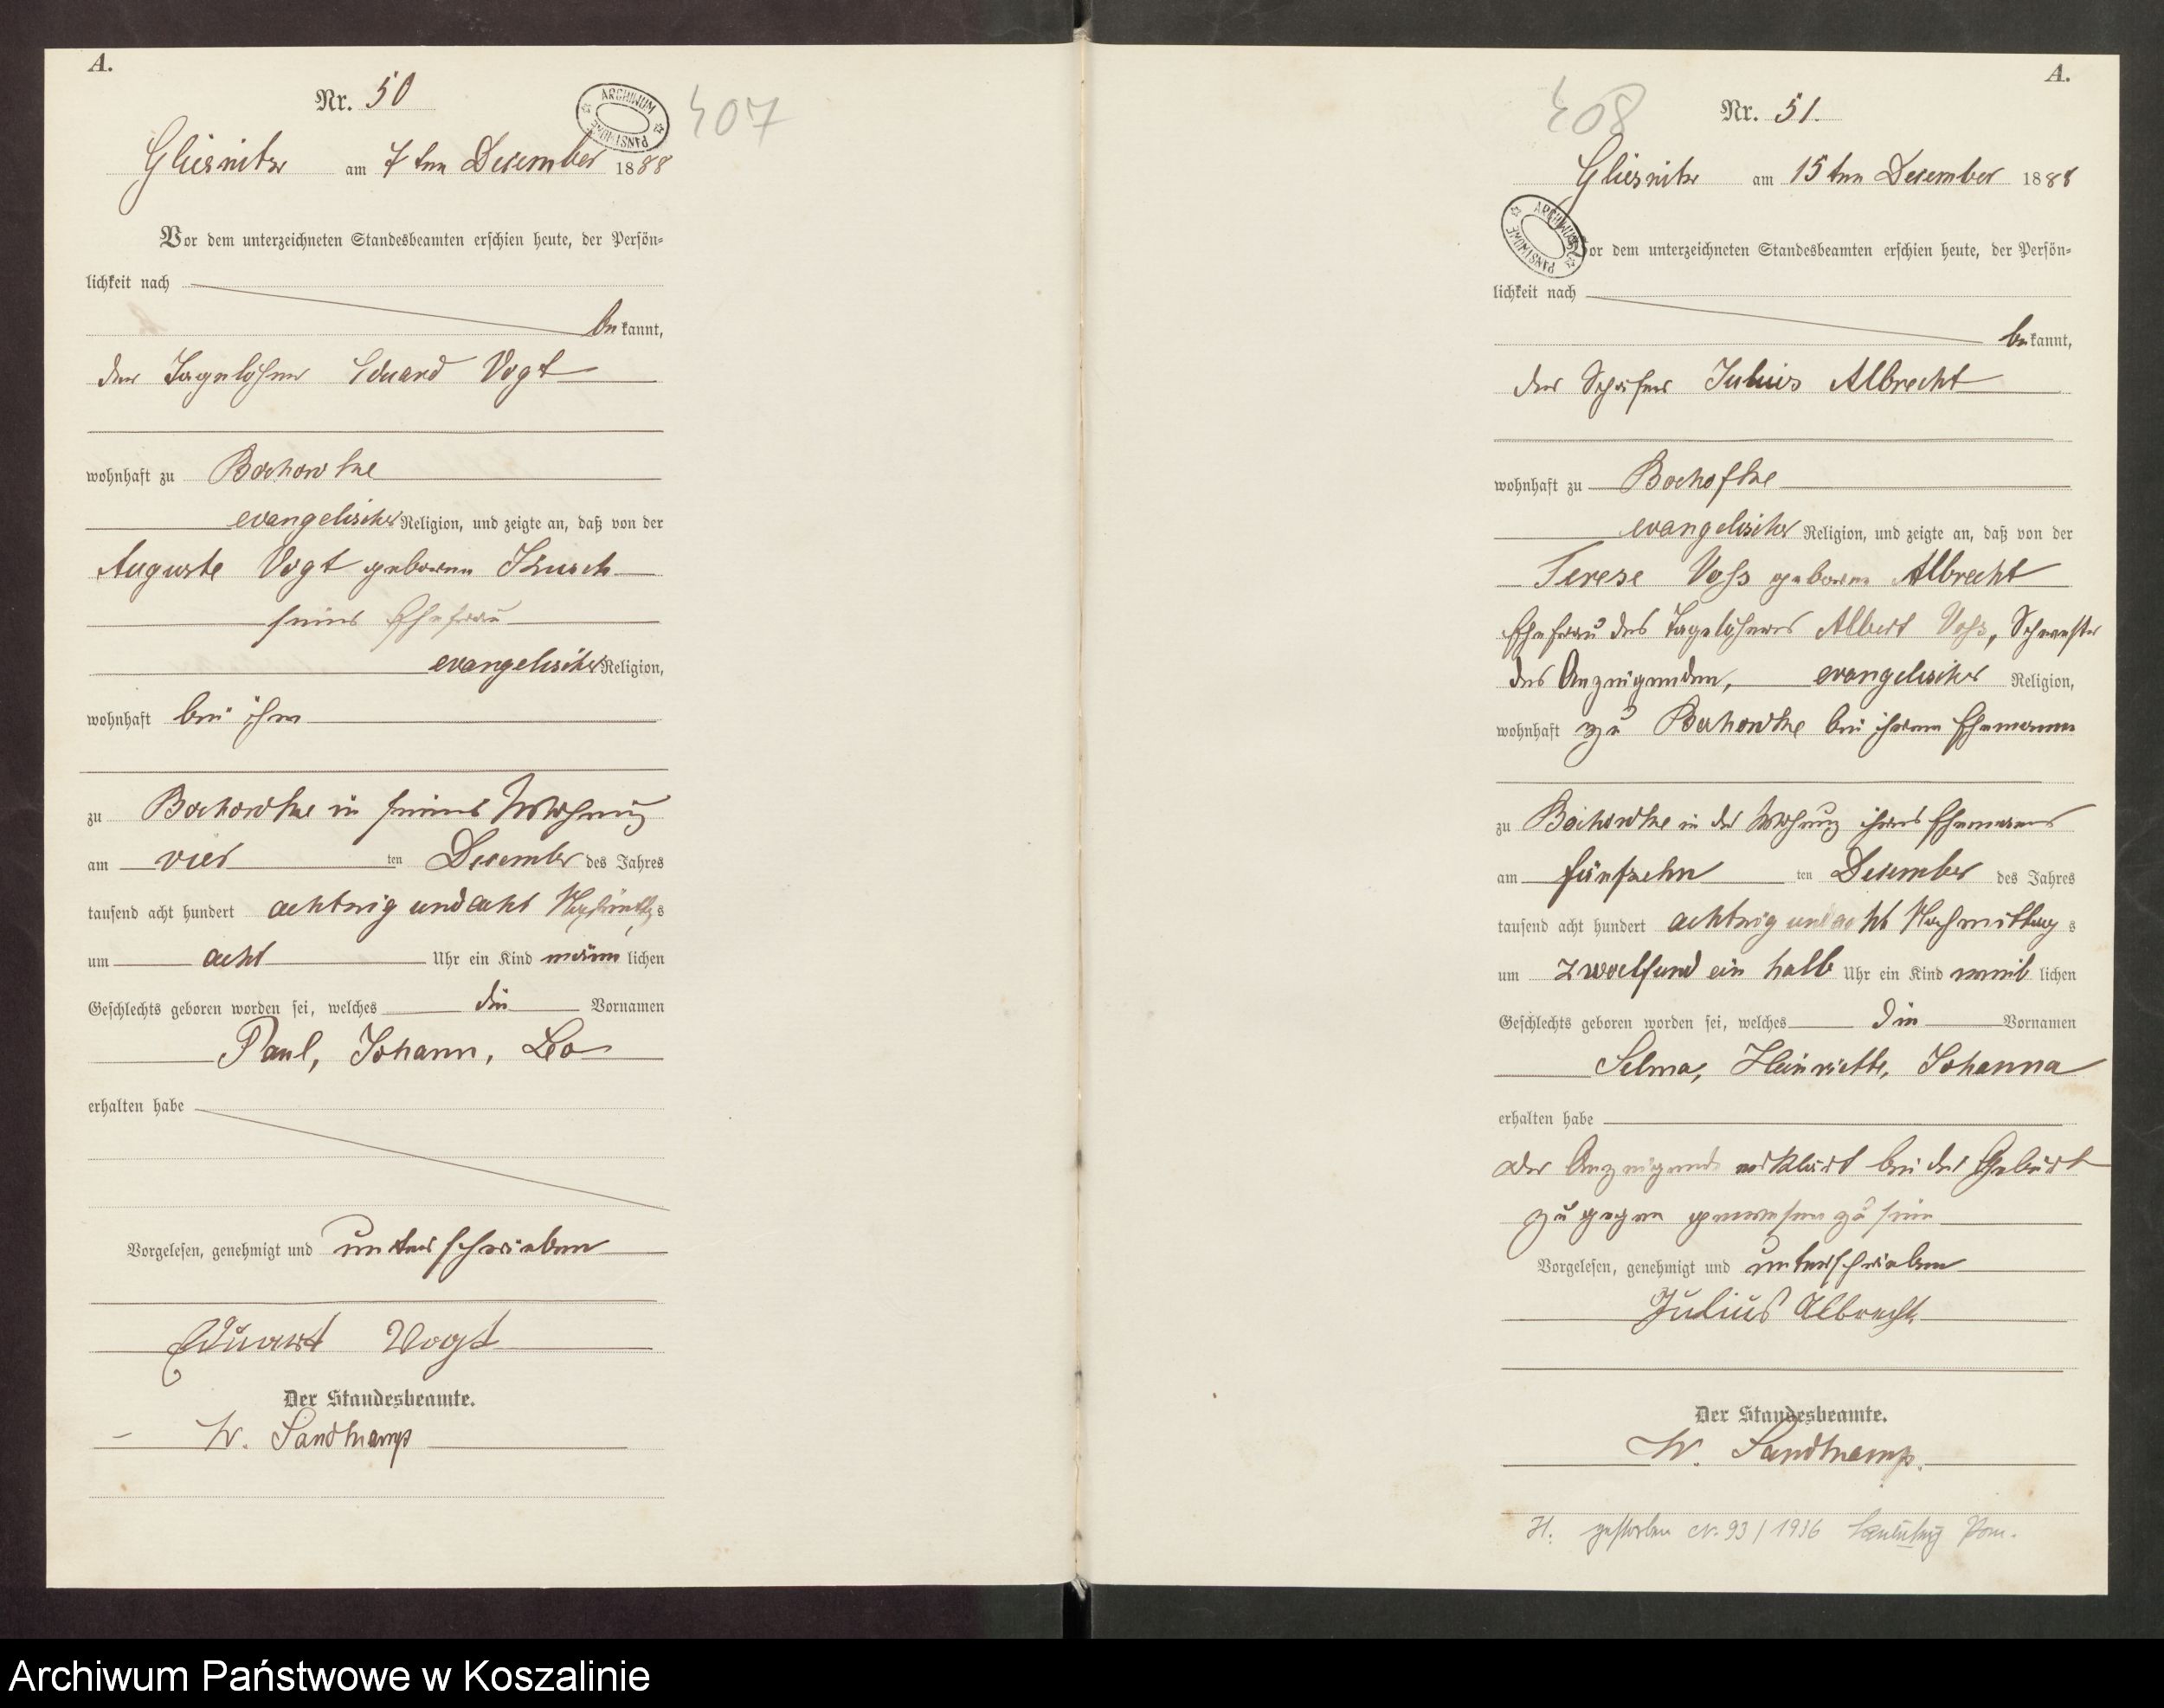 A.
Nr. 50
ARCHIWUM PAŃSTWOWE
407
Gliesnitz am 7 ten Dezember 1888
Vor dem unterzeichneten Standesbeamten erschien heute, der Persön=
lichkeit nach
be kannt,
der Tagelöhner Eduard Vogt
wohnhaft zu Bochowke
evangelischer Religion, und zeigte an, daß von der
Auguste Vogt geborenen
seiner Ehefrau
evangelischer Religion,
wohnhaft bei ihm
zu Bochowke in seiner Wohnung
am vier ten Dezember des Jahres
tausend acht hundert achtzig und acht Nachmittags
um acht Uhr ein Kind männ lichen
Geschlechts geboren worden sei, welches die Vornamen
Paul, Johann, Leo
erhalten habe
Vorgelesen, genehmigt und unterschrieben
Eduart Vogt
Der Standesbeamte.
W. Sandkamp
A.
408
Nr. 51.
Gliesnitz am 15 ten Dezember 1888
ARCHIWUM PAŃSTWOWE
Vor dem unterzeichneten Standesbeamten erschien heute, der Persön=
lichkeit nach
be kannt,
der Schäfer Julius Albrecht
wohnhaft zu Bochofke
evangelischer Religion, und zeigte an, daß von der
Terese Voss geborne Albrecht
Ehefrau des Tagelöhners Albert Voss, Schwester
des Anzeigenden, evangelischer Religion,
wohnhaft zu Bochowke bei ihrem Ehemanne
zu Bochowke in der Wohnung ihres Ehemannes
am fünfzehn ten Dezember des Jahres
tausend acht hundert achtzig und acht Nachmittag s
um zwoelf und ein halb Uhr ein Kind weib lichen
Geschlechts geboren worden sei, welches die Vornamen
Selma, Heinriette, Johanna
erhalten habe
Der Anzeigende erklärt bei der Geburt
zugegen gewesen zu sein
Vorgelesen, genehmigt und unterschrieben
Julius Albrecht
Der Standesbeamte.
W. Sandkamp.
H. gestorben Nr. 93/1936 Lauenburg Pom.
Archiwum Państwowe w Koszalinie